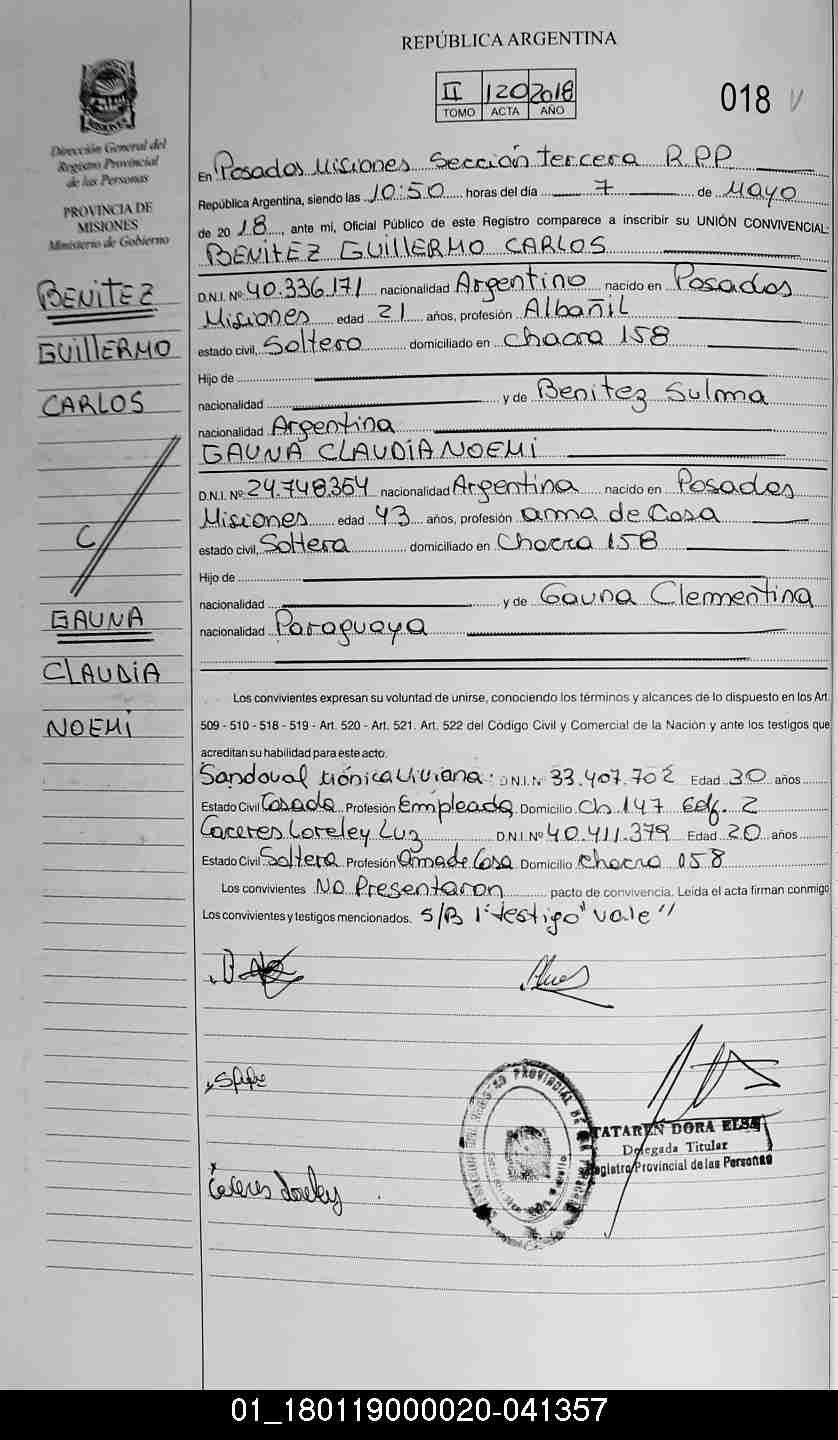 REPÚBLICA ARGENTINA
II 120 2018
TOMO ACTA AÑO
018
Dirección General del
Registro Provincial
de las Personas
PROVINCIA DE
MISIONES
Ministerio de Gobierno
BENITEZ
GUILLERMO
CARLOS
C
GAUNA
CLAUDIA
NOEMI
En Posadas Misiones Sección tercera R.P.P
República Argentina, siendo las 10:50 horas del día 7 de Mayo
de 20 18, ante mi, Oficial Público de este Registro comparece a inscribir su UNIÓN CONVIVENCIAL:
BENITEZ GUILLERMO CARLOS
D.N.I. Nº 40.336.171 nacionalidad Argentino nacido en Posadas
Misiones edad 21 años, profesión Albañil
estado civil, Soltero domiciliado en chacra 158
Hijo de
nacionalidad y de Benitez Sulma
nacionalidad Argentina
GAUNA CLAUDIA NOEMI
D.N.I. Nº 24.748.364 nacionalidad Argentina nacido en Posadas
Misiones edad 43 años, profesión ama de Casa
estado civil, Soltera domiciliado en Chacra 158
Hijo de
nacionalidad y de Gauna Clementina
nacionalidad Paraguaya
Los convivientes expresan su voluntad de unirse, conociendo los términos y alcances de lo dispuesto en los Art.
509 - 510 - 518 - 519 - Art. 520 - Art. 521. Art. 522 del Código Civil y Comercial de la Nación y ante los testigos que
acreditan su habilidad para este acto.
Sandoval Mónica Viviana: D.N.I. N 33.407.702 Edad 30 años
Estado Civil Casada Profesión Empleada Domicilio Ch 147 Edf. 2
Caceres Loreley Luz D.N.I Nº 40.411.379 Edad 20 años
Estado Civil Soltera Profesión Ama de Casa Domicilio chacra 058
Los convivientes No Presentaron pacto de convivencia. Leída el acta firman conmigo
Los convivientes y testigos mencionados. S/B 1 "testigo" vale"
Caceres Loreley
TATAREN DORA ELSA
Delegada Titular
Registro Provincial de las Personas
01_180119000020-041357